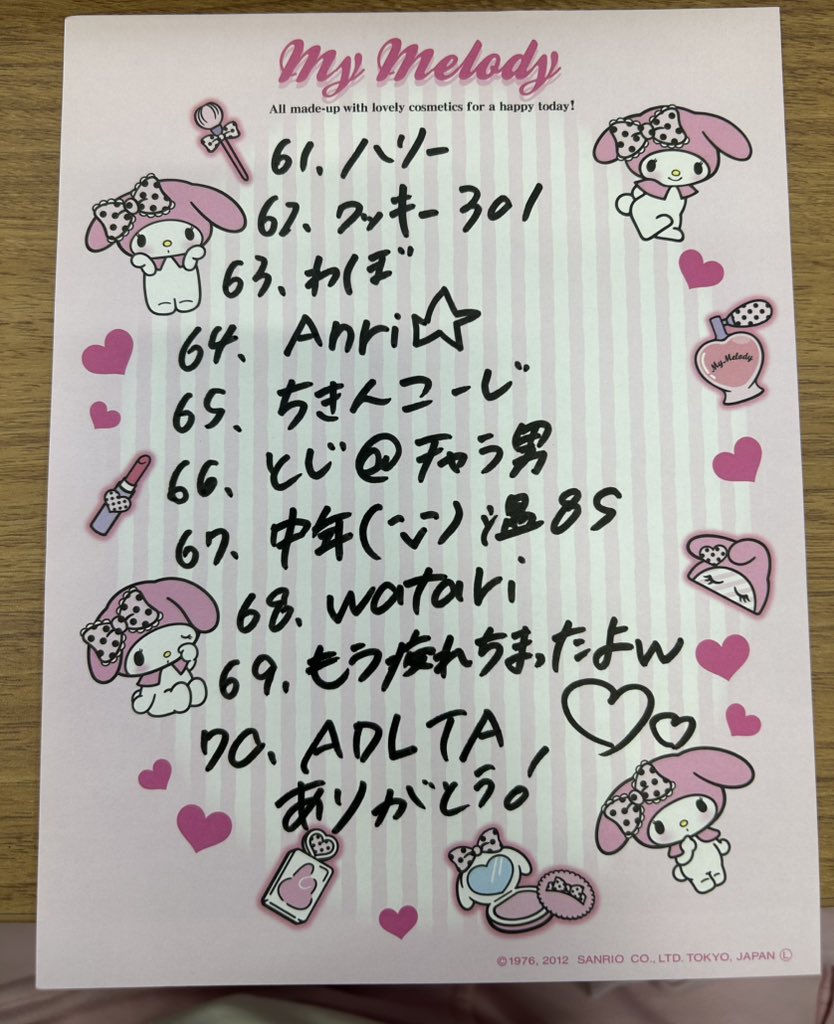 My Melody
All made-up with lovely cosmetics for a happy today!
61. ハリー
62. クッキー301
63. わしぼ
64. Anri☆
My Melody
65. ちきんこーじ
66. とじ@チャラ男
67. 中年(ー̆ ̆ー) 温85
68. watari
69. もう疲れちまったよw
70. ADLTA
ありがとう!
©1976, 2012 SANRIO CO., LTD. TOKYO, JAPAN Ⓛ